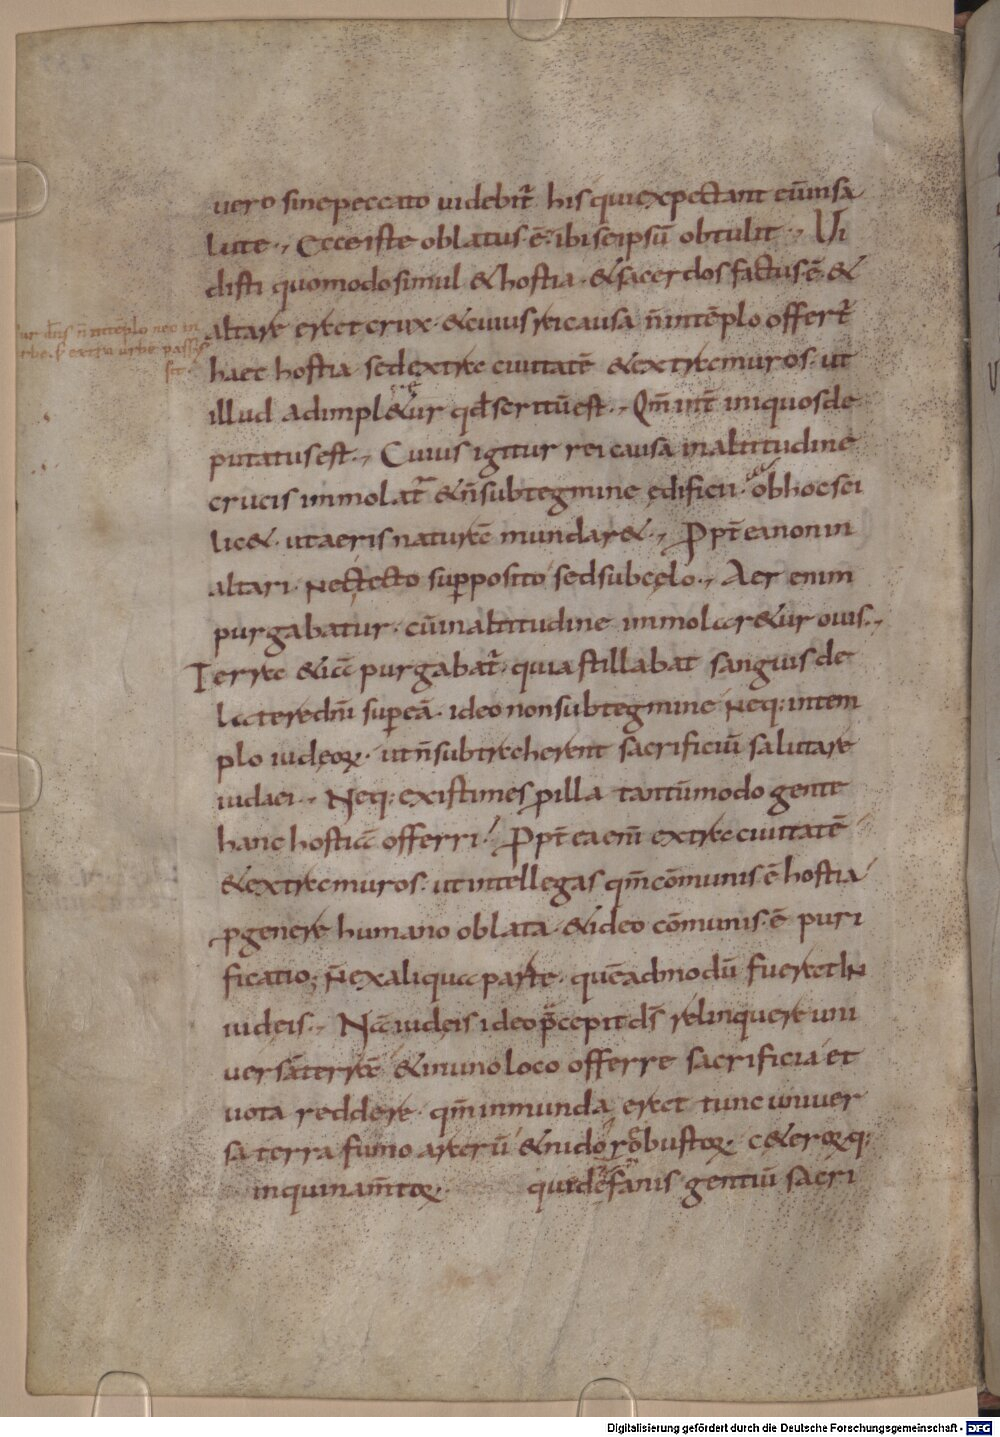 uero sine peccato uidebit̄ his qui expectant eū insa
lute., Ecce iste oblatus·ē·ibi seipsū obtulit., Vi
disti quomodo simul & hostia·& sacerdos factus·ē·&
altare erat crux·& cuius rei causa n̄ in tēplo offert̄
haec hostia· sed extra ciuitatē & extra muros· ut
illud adimpl&ur qđ scritū est., Qm̄ int̄ iniquos de
putatus est., Cuius igitur rei causa in altitudine
crucis immolat̄ & n̄ sub tegmine ędificii· ob hoc sci
lic&· ut aeris naturā mundar&., Ꝓpt̄ ea non in
altari· nec tecto supposito sed sub cęlo., Aer enim
purgabatur· cū in altitudine immolar&ur ouis.,
Terra &iā purgabat̄· quia stillabat sanguis de
latere dn̄i sup eā· ideo non sub tegmine neq; in tem
plo iudęoꝝ· ut n̄ subtraherent sacrificiū salutare
iudaei., Neq; existimes ꝓ illa tantū modo gente
hanc hostiā offerri! Ꝓpt̄ ea em̄ extra ciuitatē
& extra muros· ut intellegas qm̄ cōmunis·ē hostia
ꝓ genere humano oblata·& ideo cōmunis·ē puri
ficatio; n̄ ex aliqua parte·quēadmodū fuerat in
iudęis., Nā iudęis ideo p̄cepit ds̄ relinquere uni
uersā terrā & in uno loco offerre sacrificia et
uota reddere· qm̄ inmunda erat tunc uniuer
sa terra fumo ararū & nidore bustoꝝ· c&eroꝝq;
inquinam̄toꝝ· qui de fanis gentiū sacri
cur dn̄s n̄ in tēplo nec in
urbe· s; extra urbē passus
sit·
Digitalisierung gefördert durch die Deutsche Forschungsgemeinschaft - DFG